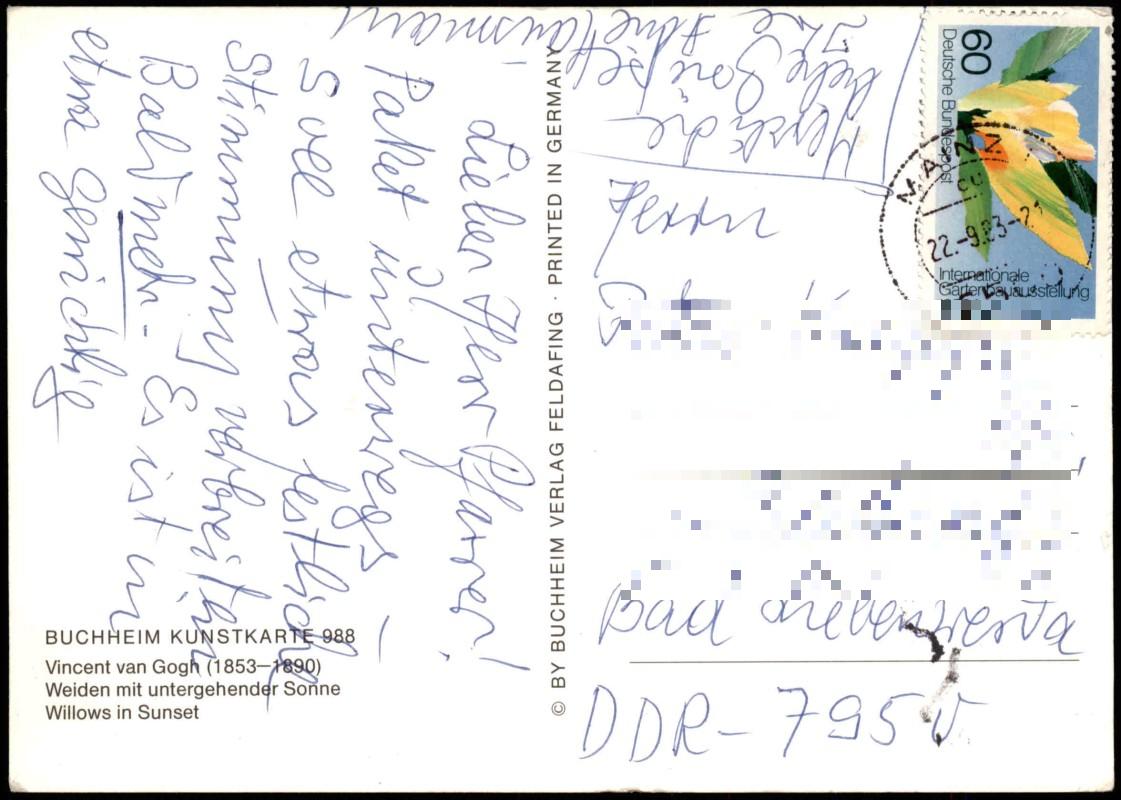 Lieber Herr Pfarrer!
Paket unterwegs –
Soll etwas festliche
Stimmung verbreiten
Bald mehr. Es ist in
etwa
Herzliche
Grüße
Ihre
Herrn
Bad Liebenwerda
DDR-7950
BUCHHEIM KUNSTKARTE 988
Vincent van Gogh (1853–1890)
Weiden mit untergehender Sonne
Willows in Sunset
© BY BUCHHEIM VERLAG FELDAFING · PRINTED IN GERMANY
60
Deutsche Bundespost
Internationale
Gartenbauausstellung
MAINZ
22.-9.83-21